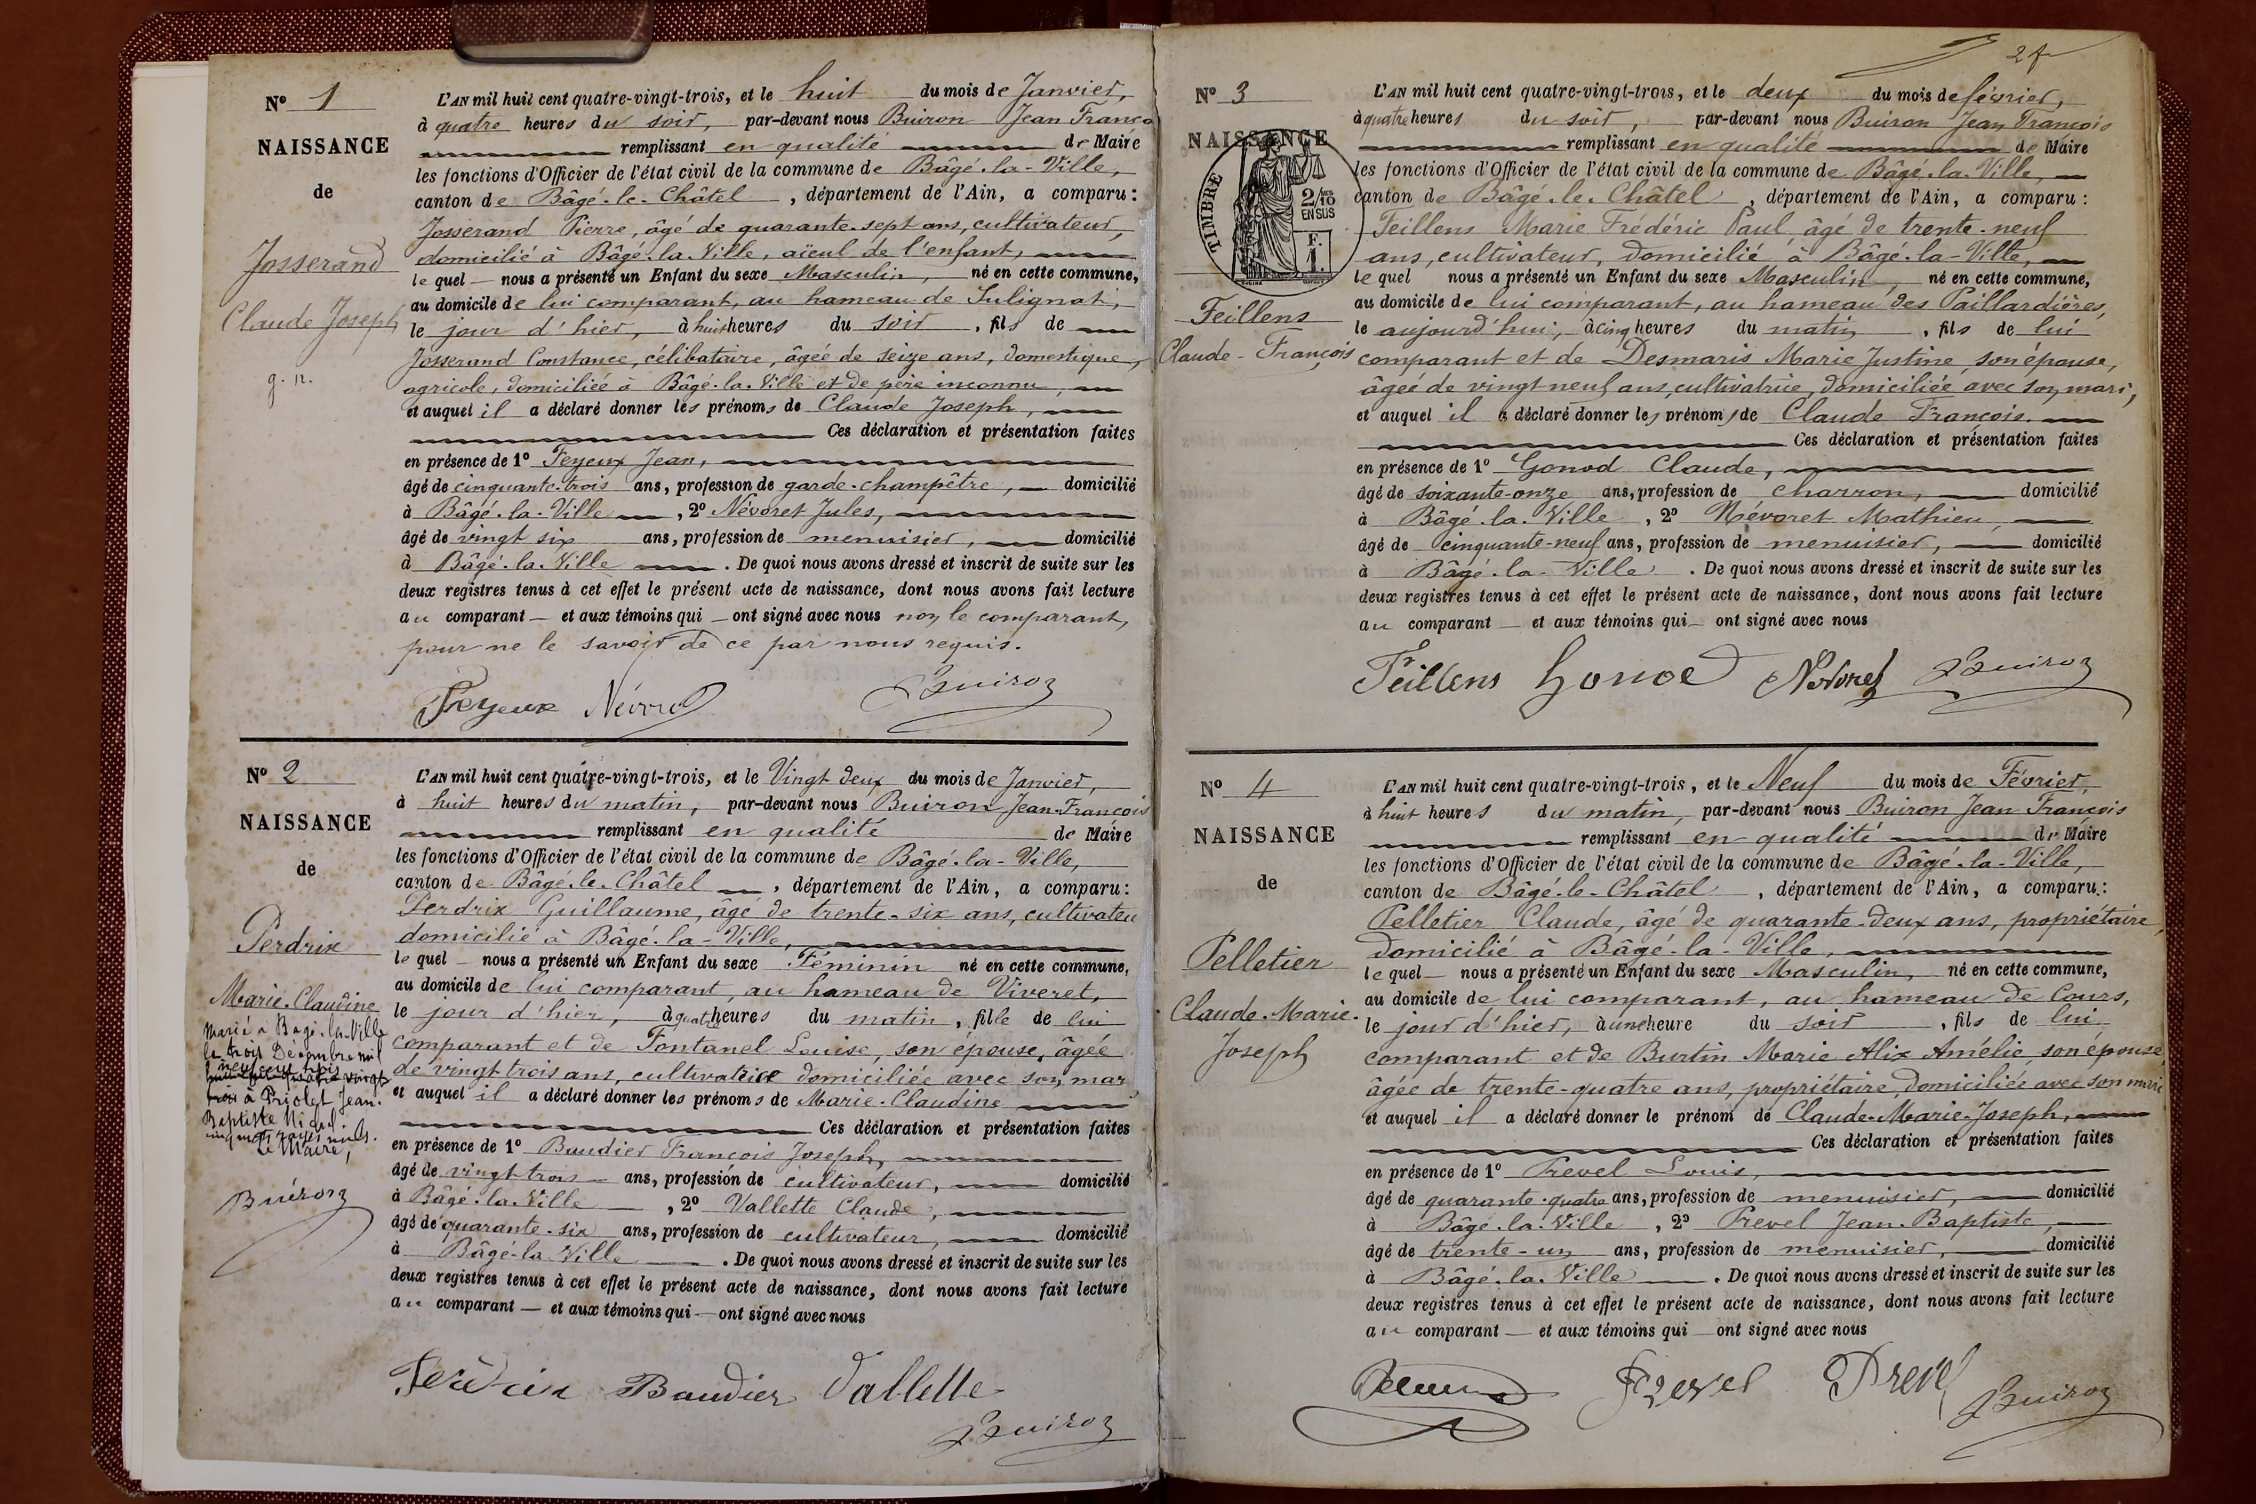 N° 1
NAISSANCE
de
Josserand
Claude Joseph
g. n.
L'AN mil huit cent quatre-vingt-trois, et le huit du mois de Janvier,
à quatre heures du soir, par-devant nous Buiron Jean Franço
remplissant en qualité de Maire
les fonctions d'Officier de l'état civil de la commune de Bâgé-la-Ville,
canton de Bâgé-le-Châtel, département de l'Ain, a comparu :
Josserand Pierre, âgé de quarante-sept ans, cultivateur,
domicilié à Bâgé-la-Ville, aïeul de l'enfant,
le quel nous a présenté un Enfant du sexe Masculin, né en cette commune,
au domicile de lui comparant, au hameau de Sulignat,
le jour d'hier, à huit heures du soir, fils de
Josserand Constance, célibataire, âgée de seize ans, domestique
agricole, domiciliée à Bâgé-la-Ville et de père inconnu,
et auquel il a déclaré donner les prénoms de Claude Joseph,
Ces déclaration et présentation faites
en présence de 1° Feyeux Jean,
âgé de cinquante-trois ans, profession de garde-champêtre, domicilié
à Bâgé-la-Ville, 2° Névoret Jules,
âgé de vingt six ans, profession de menuisier, domicilié
à Bâgé-la-Ville. De quoi nous avons dressé et inscrit de suite sur les
deux registres tenus à cet effet le présent acte de naissance, dont nous avons fait lecture
au comparant et aux témoins qui ont signé avec nous non le comparant,
pour ne le savoir de ce par nous requis.
Feyeux Névoret Buiron
N° 2
NAISSANCE
de
Perdrix
Marie-Claudine
Marié à Bagé-la-Ville
le trois Décembre mil
neuf cent trois
à Priolet Jean-
Baptiste
rayés nuls.
Le Maire,
Buiron
L'AN mil huit cent quatre-vingt-trois, et le Vingt deux du mois de Janvier,
à huit heures du matin, par-devant nous Buiron Jean-François
remplissant en qualité de Maire
les fonctions d'Officier de l'état civil de la commune de Bâgé-la-Ville,
canton de Bâgé-le-Châtel, département de l'Ain, a comparu :
Perdrix Guillaume, âgé de trente-six ans, cultivateu
domicilié à Bâgé-la-Ville,
le quel nous a présenté un Enfant du sexe Féminin né en cette commune,
au domicile de lui comparant, au hameau de Viveret,
le jour d'hier, à quatre heures du matin, fille de lui
comparant et de Fontanel Louise, son épouse, âgée
de vingt trois ans, cultivatrice domiciliée avec son mar
et auquel il a déclaré donner les prénoms de Marie-Claudine
Ces déclaration et présentation faites
en présence de 1° Baudier François Joseph,
âgé de vingt-trois ans, profession de cultivateur, domicilié
à Bâgé-la-Ville, 2° Vallette Claude,
âgé de quarante-six ans, profession de cultivateur, domicilié
à Bâgé-la-Ville. De quoi nous avons dressé et inscrit de suite sur les
deux registres tenus à cet effet le présent acte de naissance, dont nous avons fait lecture
au comparant et aux témoins qui ont signé avec nous
Perdrix Baudier Vallette
Buiron
N° 3
NAISSANCE
TIMBRE
2/10
EN SUS
F.
1.
Feillens
Claude-François
L'AN mil huit cent quatre-vingt-trois, et le deux du mois de février,
à quatre heures du soir, par-devant nous Buiron Jean François
remplissant en qualité de Maire
les fonctions d'Officier de l'état civil de la commune de Bâgé-la-Ville,
canton de Bâgé-le-Châtel, département de l'Ain, a comparu :
Feillens Marie Frédéric Paul âgé de trente-neuf
ans, cultivateur, domicilié à Bâgé-la-Ville,
le quel nous a présenté un Enfant du sexe Masculin, né en cette commune,
au domicile de lui comparant, au hameau des Paillardières,
le aujourd'hui, à cinq heures du matin, fils de lui
comparant et de Desmaris Marie Justine, son épouse,
âgée de vingt neuf ans, cultivatrice, domiciliée avec son mari,
et auquel il a déclaré donner les prénoms de Claude François.
Ces déclaration et présentation faites
en présence de 1° Gonod Claude,
âgé de soixante-onze ans, profession de charron, domicilié
à Bâgé-la-Ville, 2° Névoret Mathieu,
âgé de cinquante-neuf ans, profession de menuisier, domicilié
à Bâgé-la-Ville. De quoi nous avons dressé et inscrit de suite sur les
deux registres tenus à cet effet le présent acte de naissance, dont nous avons fait lecture
au comparant et aux témoins qui ont signé avec nous
Feillens Gonod Névoret Buiron
N° 4
NAISSANCE
de
Pelletier
Claude-Marie-
Joseph
L'AN mil huit cent quatre-vingt-trois, et le Neuf du mois de Février,
à huit heures du matin, par-devant nous Buiron Jean François
remplissant en qualité de Maire
les fonctions d'Officier de l'état civil de la commune de Bâgé-la-Ville,
canton de Bâgé-le-Châtel, département de l'Ain, a comparu :
Pelletier Claude, âgé de quarante-deux ans, propriétaire,
domicilié à Bâgé-la-Ville,
le quel nous a présenté un Enfant du sexe Masculin, né en cette commune,
au domicile de lui comparant, au hameau de Cours,
le jour d'hier, à une heure du soir, fils de lui
comparant et de Burtin Marie Alix Amélie, son épouse
âgée de trente-quatre ans, propriétaire, domiciliée avec son mari
et auquel il a déclaré donner le prénom de Claude-Marie-Joseph,
Ces déclaration et présentation faites
en présence de 1° Prevel Louis,
âgé de quarante-quatre ans, profession de menuisier, domicilié
à Bâgé-la-Ville, 2° Prevel Jean-Baptiste,
âgé de trente-un ans, profession de menuisier, domicilié
à Bâgé-la-Ville. De quoi nous avons dressé et inscrit de suite sur les
deux registres tenus à cet effet le présent acte de naissance, dont nous avons fait lecture
au comparant et aux témoins qui ont signé avec nous
Prevel Prevel Buiron